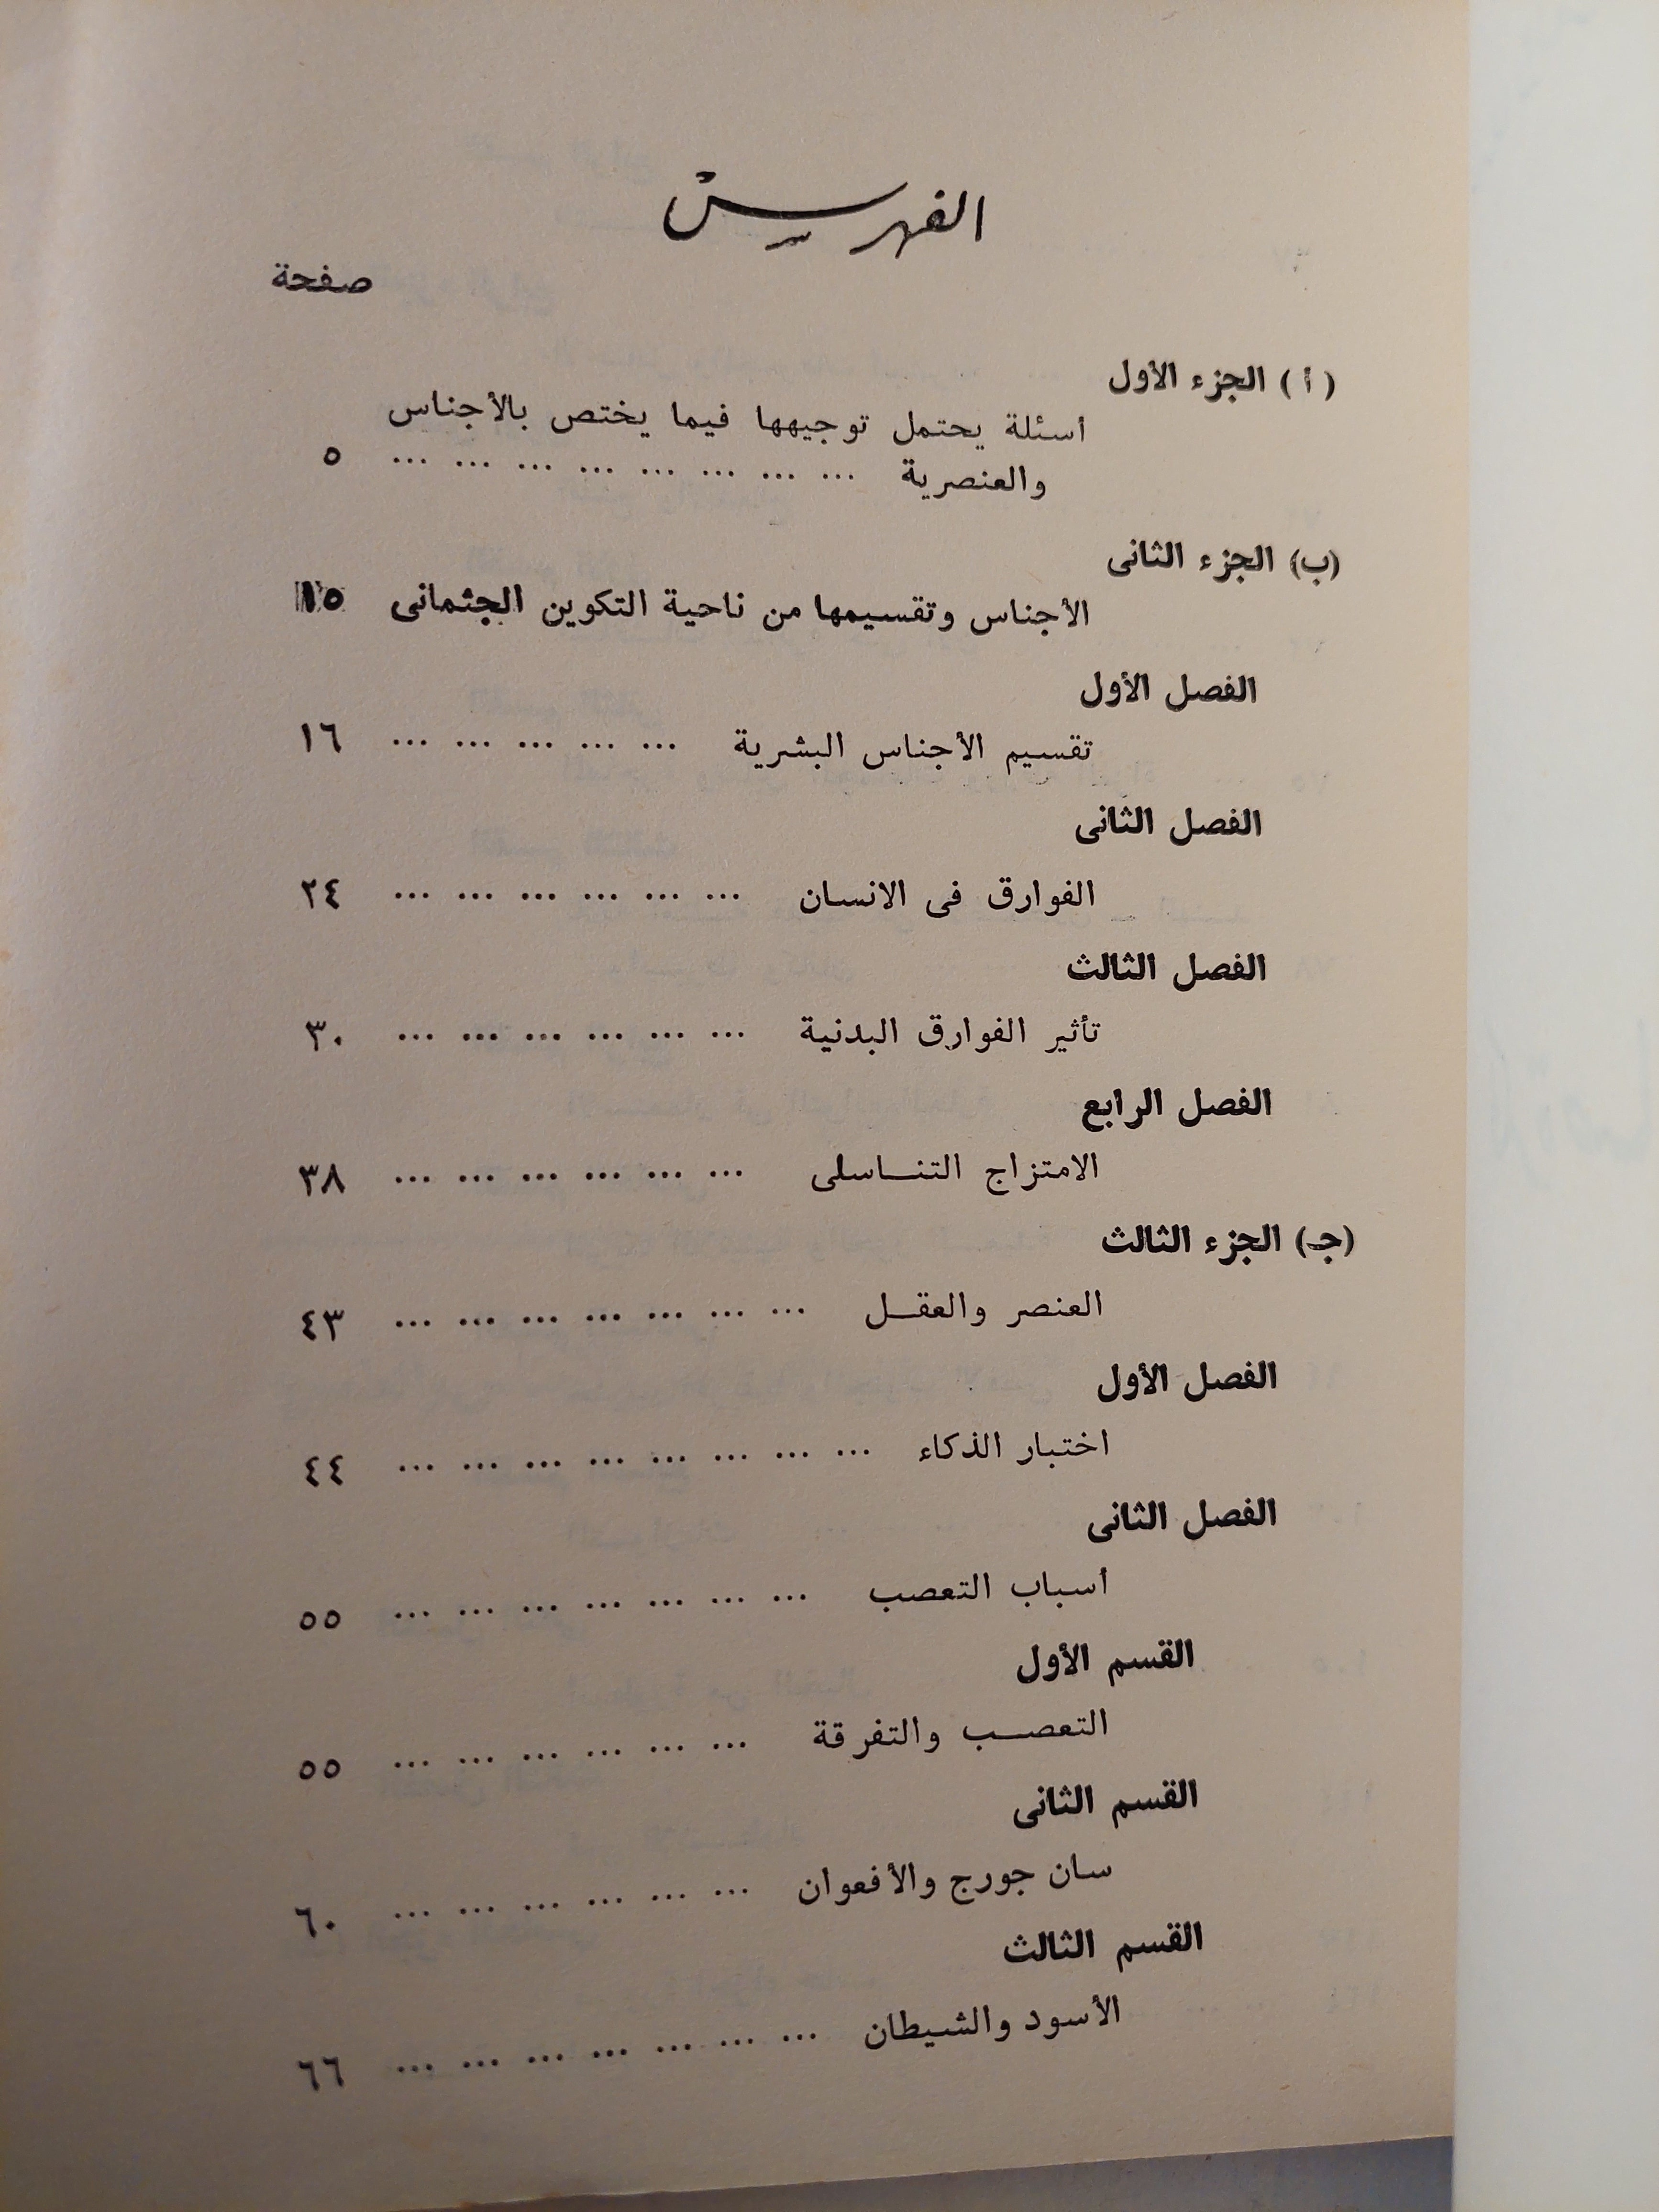 الفهرس
صفحة
( أ ) الجزء الأول
أسئلة يحتمل توجيهها فيما يختص بالأجناس
والعنصرية ... ... ... ... ... ... ... ... ٥
(ب) الجزء الثانى
الأجناس وتقسيمها من ناحية التكوين الجثمانى ١٥
الفصل الأول
تقسيم الأجناس البشرية ... ... ... ... ... ١٦
الفصل الثانى
الفوارق فى الانسان ... ... ... ... ... ... ٢٤
الفصل الثالث
تأثير الفوارق البدنية ... ... ... ... ... ... ٣٠
الفصل الرابع
الامتزاج التنـاسلى ... ... ... ... ... ... ٣٨
(جـ) الجزء الثالث
العنصر والعقـل ... ... ... ... ... ... ... ٤٣
الفصل الأول
اختبار الذكاء ... ... ... ... ... ... ... ... ٤٤
الفصل الثانى
أسباب التعصب ... ... ... ... ... ... ... ٥٥
القسم الأول
التعصـب والتفرقة ... ... ... ... ... ... ٥٥
القسم الثانى
سان جورج والأفعوان ... ... ... ... ... ... ٦٠
القسم الثالث
الأسود والشيطان ... ... ... ... ... ... ... ٦٦